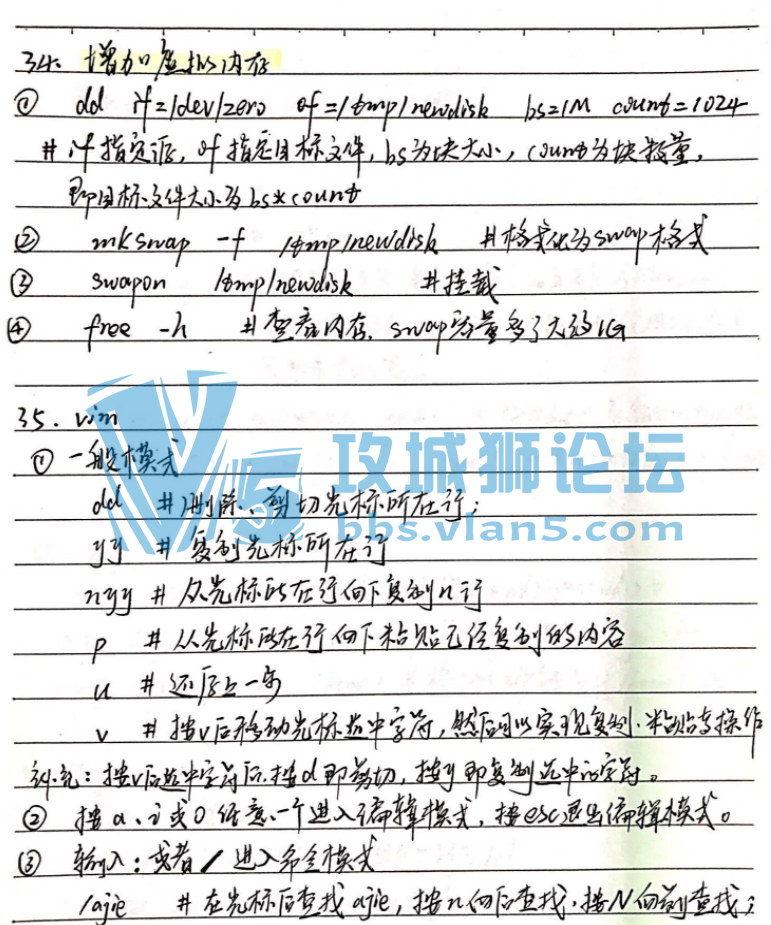 34. 增加虚拟内存
① dd if=/dev/zero of=/tmp/newdisk bs=1M count=1024
# if指定源, of指定目标文件, bs为块大小, count为块数量,
即目标文件大小为bs*count
② mkswap -f /tmp/newdisk #格式化为swap格式
③ swapon /tmp/newdisk #挂载
④ free -h #查看内存, swap容量多了大约1G
35. vim
① 一般模式
V5 攻城狮论坛
bbs.vlan5.com
dd #删除、剪切光标所在行;
yy # 复制光标所在行
nyy # 从光标所在行向下复制n行
p # 从光标所在行向下粘贴已经复制的内容
u # 还原上一步
v # 按v后移动光标选中字符, 然后可以实现复制、粘贴等操作
补充: 按v后选中字符后, 按d即剪切, 按y即复制选中的字符。
② 按a、i或o任意一个进入编辑模式, 按esc退出编辑模式。
③ 输入: 或者/进入命令模式
/ajie # 在光标后查找ajie, 按n向后查找, 按N向前查找;